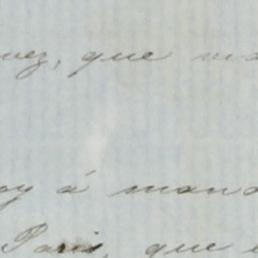 vez, que
oy á mand
Paris, que